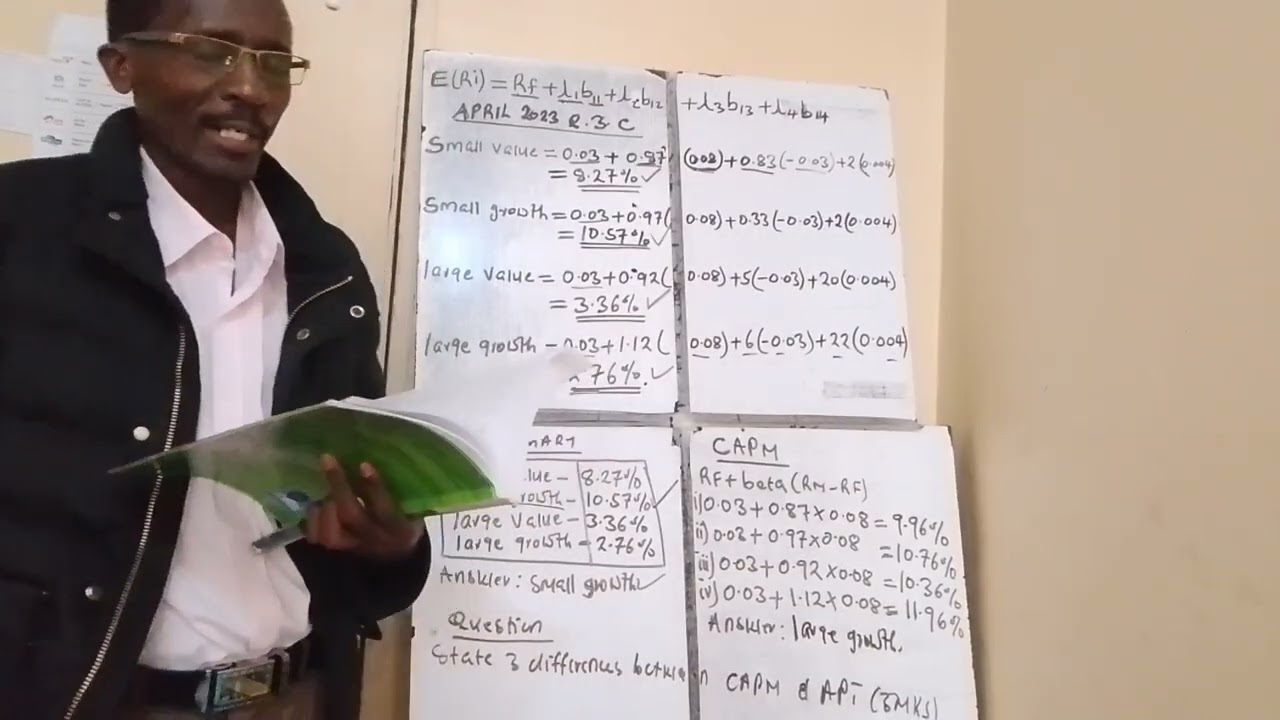 E(Ri) = Rf + λ1b11 + λ2b12 + λ3b13 + λ4b14
APRIL 2023 Q.3.C
Small value = 0.03 + 0.87(0.08) + 0.83(-0.03) + 2(0.004)
= 8.27% ✓
Small growth = 0.03 + 0.97(0.08) + 0.33(-0.03) + 2(0.004)
= 10.57% ✓
large value = 0.03 + 0.92(0.08) + 5(-0.03) + 20(0.004)
= 3.36% ✓
large growth - 0.03 + 1.12(0.08) + 6(-0.03) + 22(0.004)
76%. ✓
lue - 8.27%
growth - 10.57% ✓
large value - 3.36%
large growth - 2.76%
Answer: Small growth ✓
CAPM
RF + beta (RM - RF)
i) 0.03 + 0.87 x 0.08 = 9.96%
ii) 0.03 + 0.97 x 0.08 = 10.76%
iii) 0.03 + 0.92 x 0.08 = 10.36%
iv) 0.03 + 1.12 x 0.08 = 11.96%
Answer: large growth.
Question
State 3 differences between CAPM & APT (3MKS)